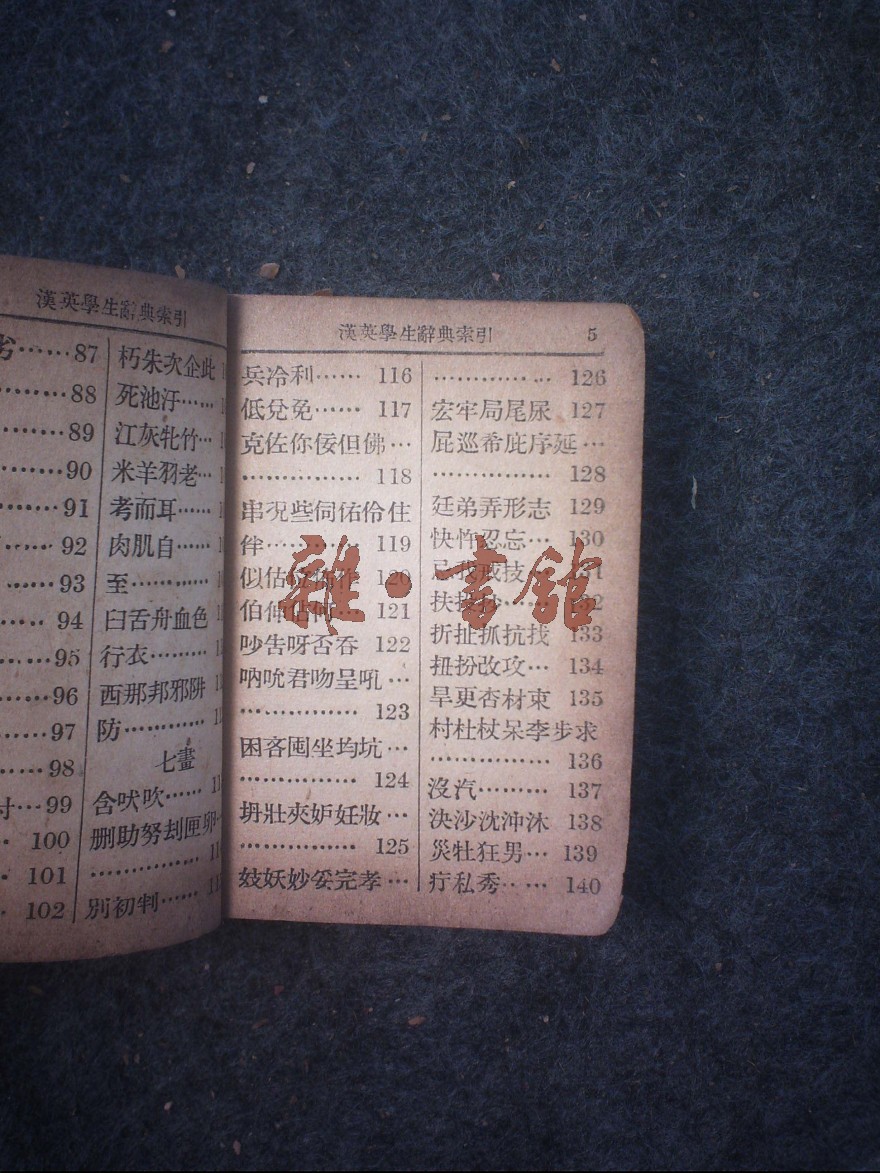 漢英學生辭典索引
87
88
89
90
91
92
93
94
95
96
97
98
99
100
101
102
朽朱次企此
死池汙……
江灰牝竹…
米羊羽老…
考而耳……
肉肌自……
至…………
臼舌舟血色
行衣………
西那邦邪阱
防…………
七畫
含吠吹……
刪助努刦匣卵…
……………
別初判……
漢英學生辭典索引 5
兵冷利…… 116
低兌免…… 117
克佐你佞但佛…
…………… 118
串況些伺佑伶住
伴………… 119
似估 作 120
伯伸佔何… 121
吵告呀否吞 122
吶吮君吻呈吼…
…………… 123
困吝囤坐均坑…
…………… 124
坍壯夾妒妊妝…
…………… 125
妓妖妙妥完孝…
…………… 126
宏牢局尾尿 127
屁巡希庇序延…
…………… 128
廷弟弄形志 129
快忤忍忘… 130
忌我戒技… 131
扶 …… 132
折扯抓抗找 133
扭扮改攻… 134
旱更杏材束 135
村杜杖呆李步求
…………… 136
沒汽……… 137
決沙沈沖沐 138
災牡狂男… 139
疔私秀…… 140
雜·書館